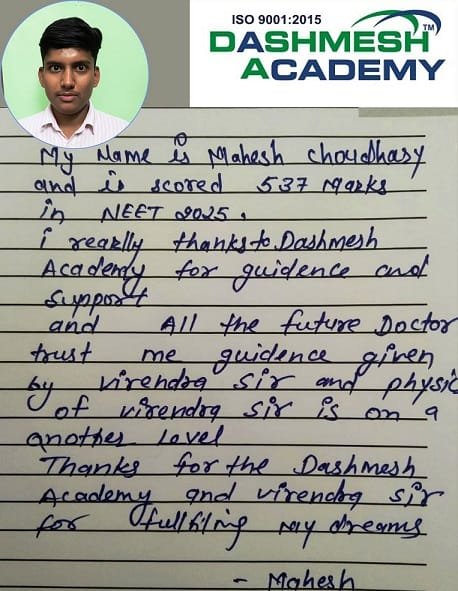 ISO 9001:2015
DASHMESH TM
ACADEMY
My Name is Mahesh Choudhary
and is scored 537 Marks
in NEET 2025.
i reaklly thanks to Dashmesh
Academy for guidence and
support
and All the future Doctor
trust me guidence given
by virendra sir and physic
of virendra sir is on a
another Level
Thanks for the Dashmesh
Academy and virendra sir
for fullfiling my dreams
- Mahesh